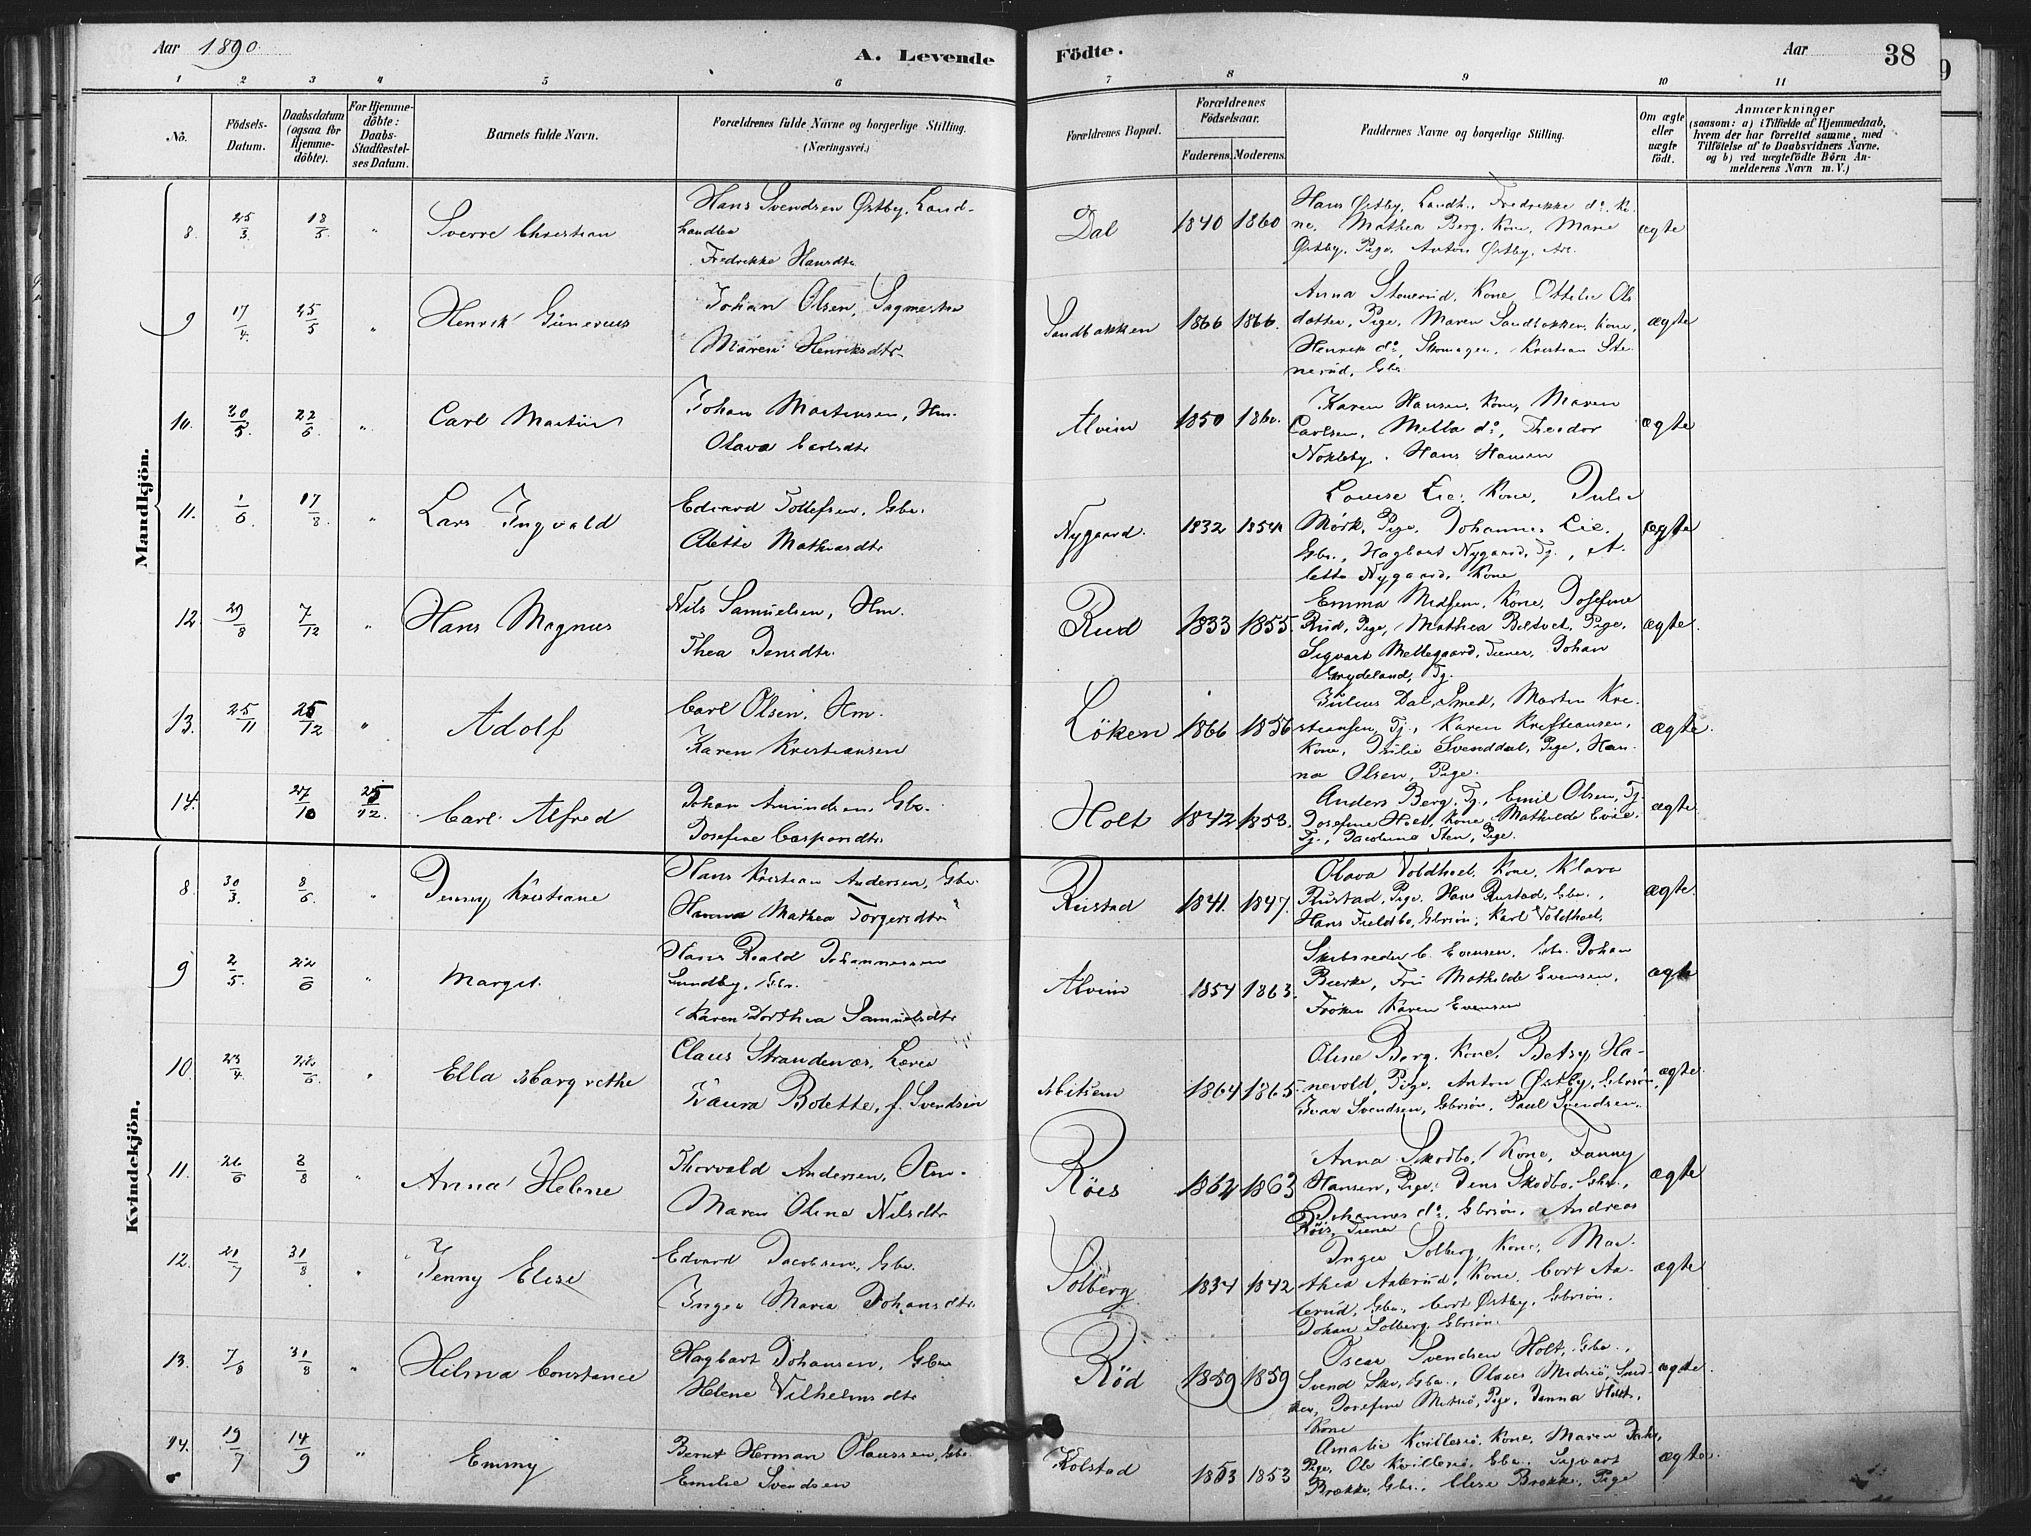 Aar 1890. A. Levende Födte. Aar 38
1 2 3 4 5 6 7 8 9 10 11
No. Födsels-Datum. Daabsdatum (ogsaa for Hjemmedöbte). For Hjemmedöbte: Daabs-Stadfæstelses Datum. Barnets fulde Navn. Forældrenes fulde Navne og borgerlige Stilling. (Næringsvei.) Forældrenes Bopæl. Forældrenes Födselsaar. Faderens. Moderens. Faddernes Navne og borgerlige Stilling. Om ægte eller uægte födt. Anmærkninger (saasom: a) i Tilfælde af Hjemmedaab, hvem der har forrettet samme, med Tilföielse af to Daabsvidners Navne, og b) ved uægtefödte Börn Anmelderens Navn m. V.)
Mandkjön.
8. 25/3 18/5 " Sverre Christian
Hans Svendsen Østby, Landhandler
Fredrikke Hansdtr.
Dal 1840 1860
Hans Østby, Landh., Fredrikke do, Kone, Mathea Berg, Kone, Marie
Østby, Pige, Anton Østby,
ægte
9 17/4 25/5 " Henrik Gunerius
Johan Olsen, Sagmester
Maren Henriksdtr.
Sandbakken 1866 1866.
Anna Stenerud, Kone, Ottilie Olsdatter, Pige, Maren Sandbakken, Kone,
Henrik do, Skomager, Kristian Stenerud, Gbr.
ægte
10. 30/5 22/6 " Carl Martin
Johan Martinsen, Hm.
Olava Carlsdtr
Alvim 1850 1860.
Karen Hansen, Kone, Maren
Carlsen, Mella do, Theodor
Nokleby, Hans Hansen
ægte
11. 1/6 17/8 " Lars Ingvald
Edvard Tollefsen, Gbr.
Alette Mathiasdtr
Nygaard. 1832 1854
Louise Lie, Kone, Julie
Mørk, Pige, Johannes Lie,
Gbr., Hagbart Nygaard, Tj., Alette Nygaard, Kone
ægte
12. 29/8 7/12 " Hans Magnus
Nils Samuelsen, Hm.
Thea Jensdtr.
Rud 1833 1855.
Emma Kone, Josefine
Rud, Pige, Mathea Pige,
Sigvart Mellegaard, Tiener, Johan
Tj.
ægte.
13. 25/11 25/12 " Adolf
Carl Olsen, Hm.
Karen Kristiansen
Løken 1866 1856
Julius Dal, Smed, Martin Kristiansen, Tj., Karen Kristiansen,
Kone, Julie Svenddal, Pige, Hanna Olsen, Pige.
ægte.
14. 27/10 25/12. Carl Alfred
Johan Amundsen, Gbr.
Josefine Casparsdtr.
Holt 1842 1853.
Anders Berg, Tj., Emil Olsen, Tj.
Josefine Holt, Kone, Mathilde
Tj., Jacobine Sten, Pige.
ægte
Kvindekjön.
8. 30/3 8/6 " Jenny Kristiane
Hans Kristian Andersen, Gbr.
Hanna Mathea Torgersdtr
Reistad 1841. 1847.
Olava Voldhoel, Kone, Klara
Rustad, Pige, Hans Rustad, Gbr.,
Hans Fieldbo, Gbrsøn, Karl Voldhoel
ægte
9 2/5 22/6 " Margit.
Hans Roald Johannesen
Sundby, Gbr.
Karen Dorthea Samuelsdtr
Alvim 1854 1863.
Skibsreder C. Evensen, Gbr. Johan
Bierke, Fru Mathilde Evensen,
Frøken Karen Evensen
ægte
10. 23/4 22/6. " Ella Margrethe
Claus Strandenæs, Lærer
Laura Bolette, f. Svendsen
1864 1865.
Oline Berg, Kone, Betsy Hanevold, Pige, Anton Østby, Gbrsøn,
Ivar Svendsen, Gbrsøn, Paul Svendsen.
ægte.
11. 26/6 3/8 " Anna Helene
Thorvald Andersen, Hm.
Maren Oline Nilsdtr
Röes 1862 1863
Anna Skodbo, Kone, Fanny
Hansen, Pige, Jens Skodbo, Gbr.,
Johannes do, Gbrsøn, Andreas
Röis, Tiener
ægte
12. 21/7 31/8 " Jenny Elise
Edvard Jacobsen, Gbr.
Inger Maria Johansdtr.
Solberg 1834 1842
Inger Solberg, Kone, Mathea Aaserud, Kone, Cort Aaserud, Gbr., Cort Østby, Gbrsøn,
Johan Solberg, Gbrsøn
ægte
13. 7/8 31/8 " Hilma Constance
Hagbart Johansen, Gbr.
Helene Vilhelmsdtr
Röd 1859 1859
Oscar Svendsen Holt, Gbr.,
Svend Gbr., Olaves Snedker, Josefine Pige, Janna Holt,
Kone
ægte.
14. 19/7 14/9 " Emmy
Bernt Herman Olaussen, Gbr.
Emilie Svendsen
Kolstad 1853 1853
Amalie Kvillesiø, Kone, Maren
Pige, Ole Kvillesiø, Gbr., Sigvart
Brække, Gbr., Elise Brække, Pige
ægte